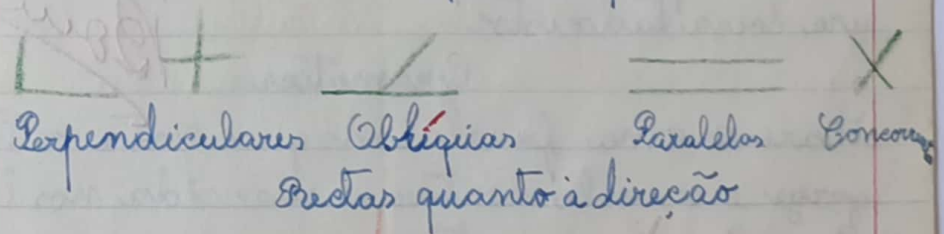 Perpendiculares Oblíquias Paralelas
Rectas quanto à direção